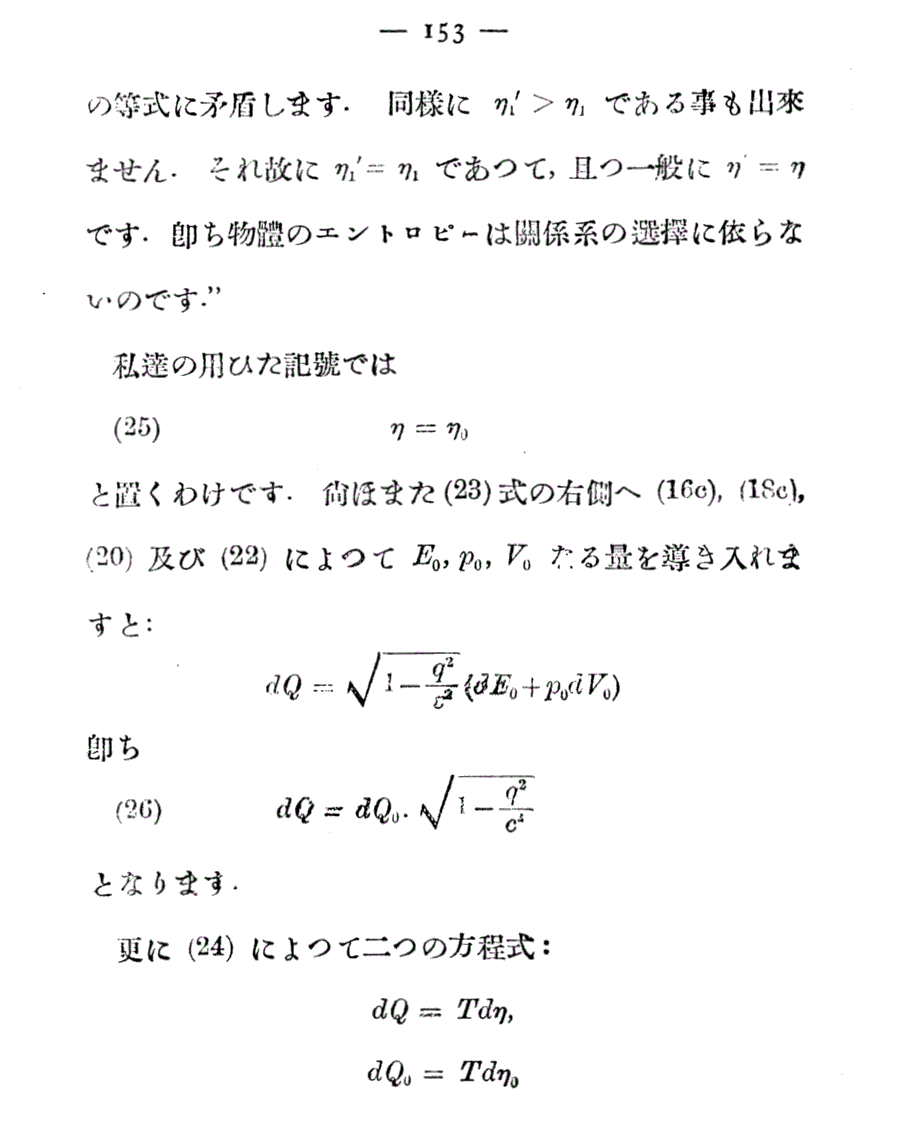 — 153 —
の等式に矛盾します. 同様に η₁′ > η₁ である事も出來
ません. それ故に η₁′ = η₁ であつて, 且つ一般に η′ = η
です. 卽ち物體のエントロピーは關係系の選擇に依らな
いのです.”
私達の用ひた記號では
(25) η = η₀
と置くわけです. 尙ほまた (23) 式の右側へ (16c), (18c),
(20) 及び (22) によつて E₀, p₀, V₀ なる量を導き入れま
すと:
dQ = √(1 − q²/c²) (dE₀ + p₀dV₀)
卽ち
(26) dQ = dQ₀. √(1 − q²/c²)
となります.
更に (24) によつて二つの方程式:
dQ = Tdη,
dQ₀ = Tdη₀